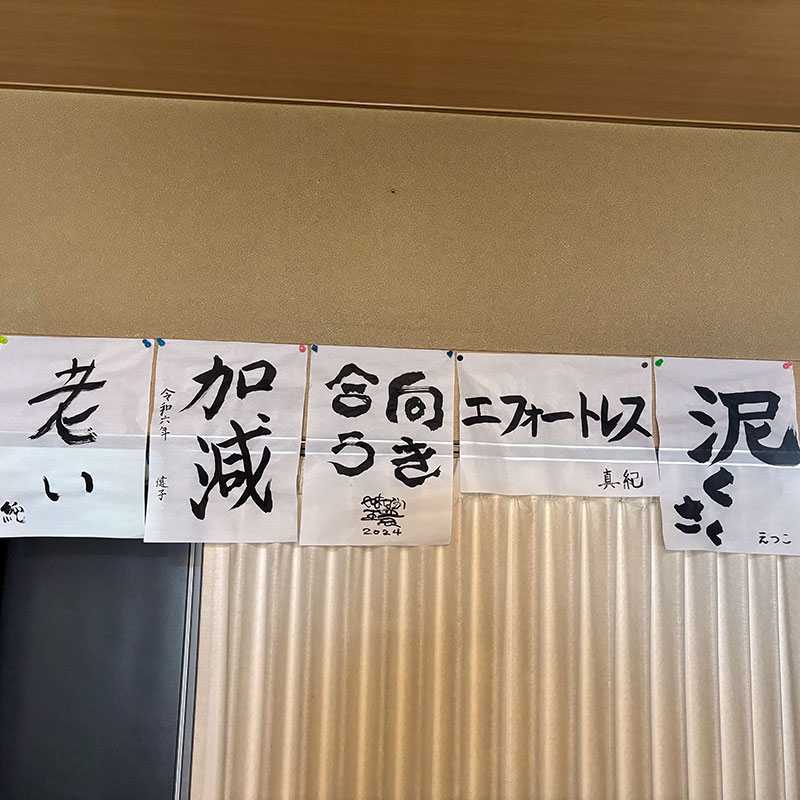 老い
純
加減
令和六年
健子
向き
合う
2024
エフォートレス
真紀
泥くさく
えつこ